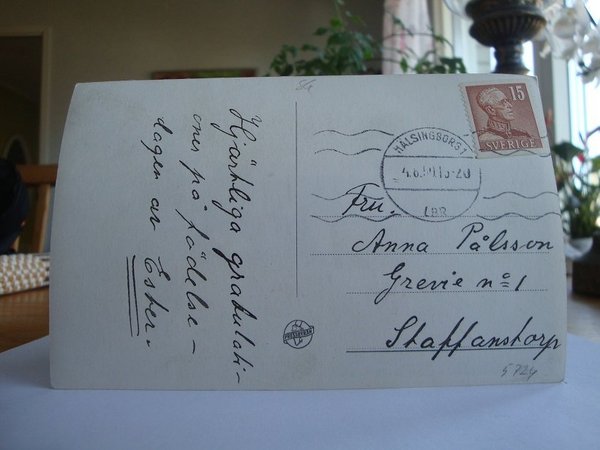 Hjärtliga gratulati-
oner på födelse-
dagen av Ester.
15
SVERIGE
HÄLSINGBORG 1
LBR
Fru.
Anna Pålsson
Grevie nº 1
Staffanstorp
5724